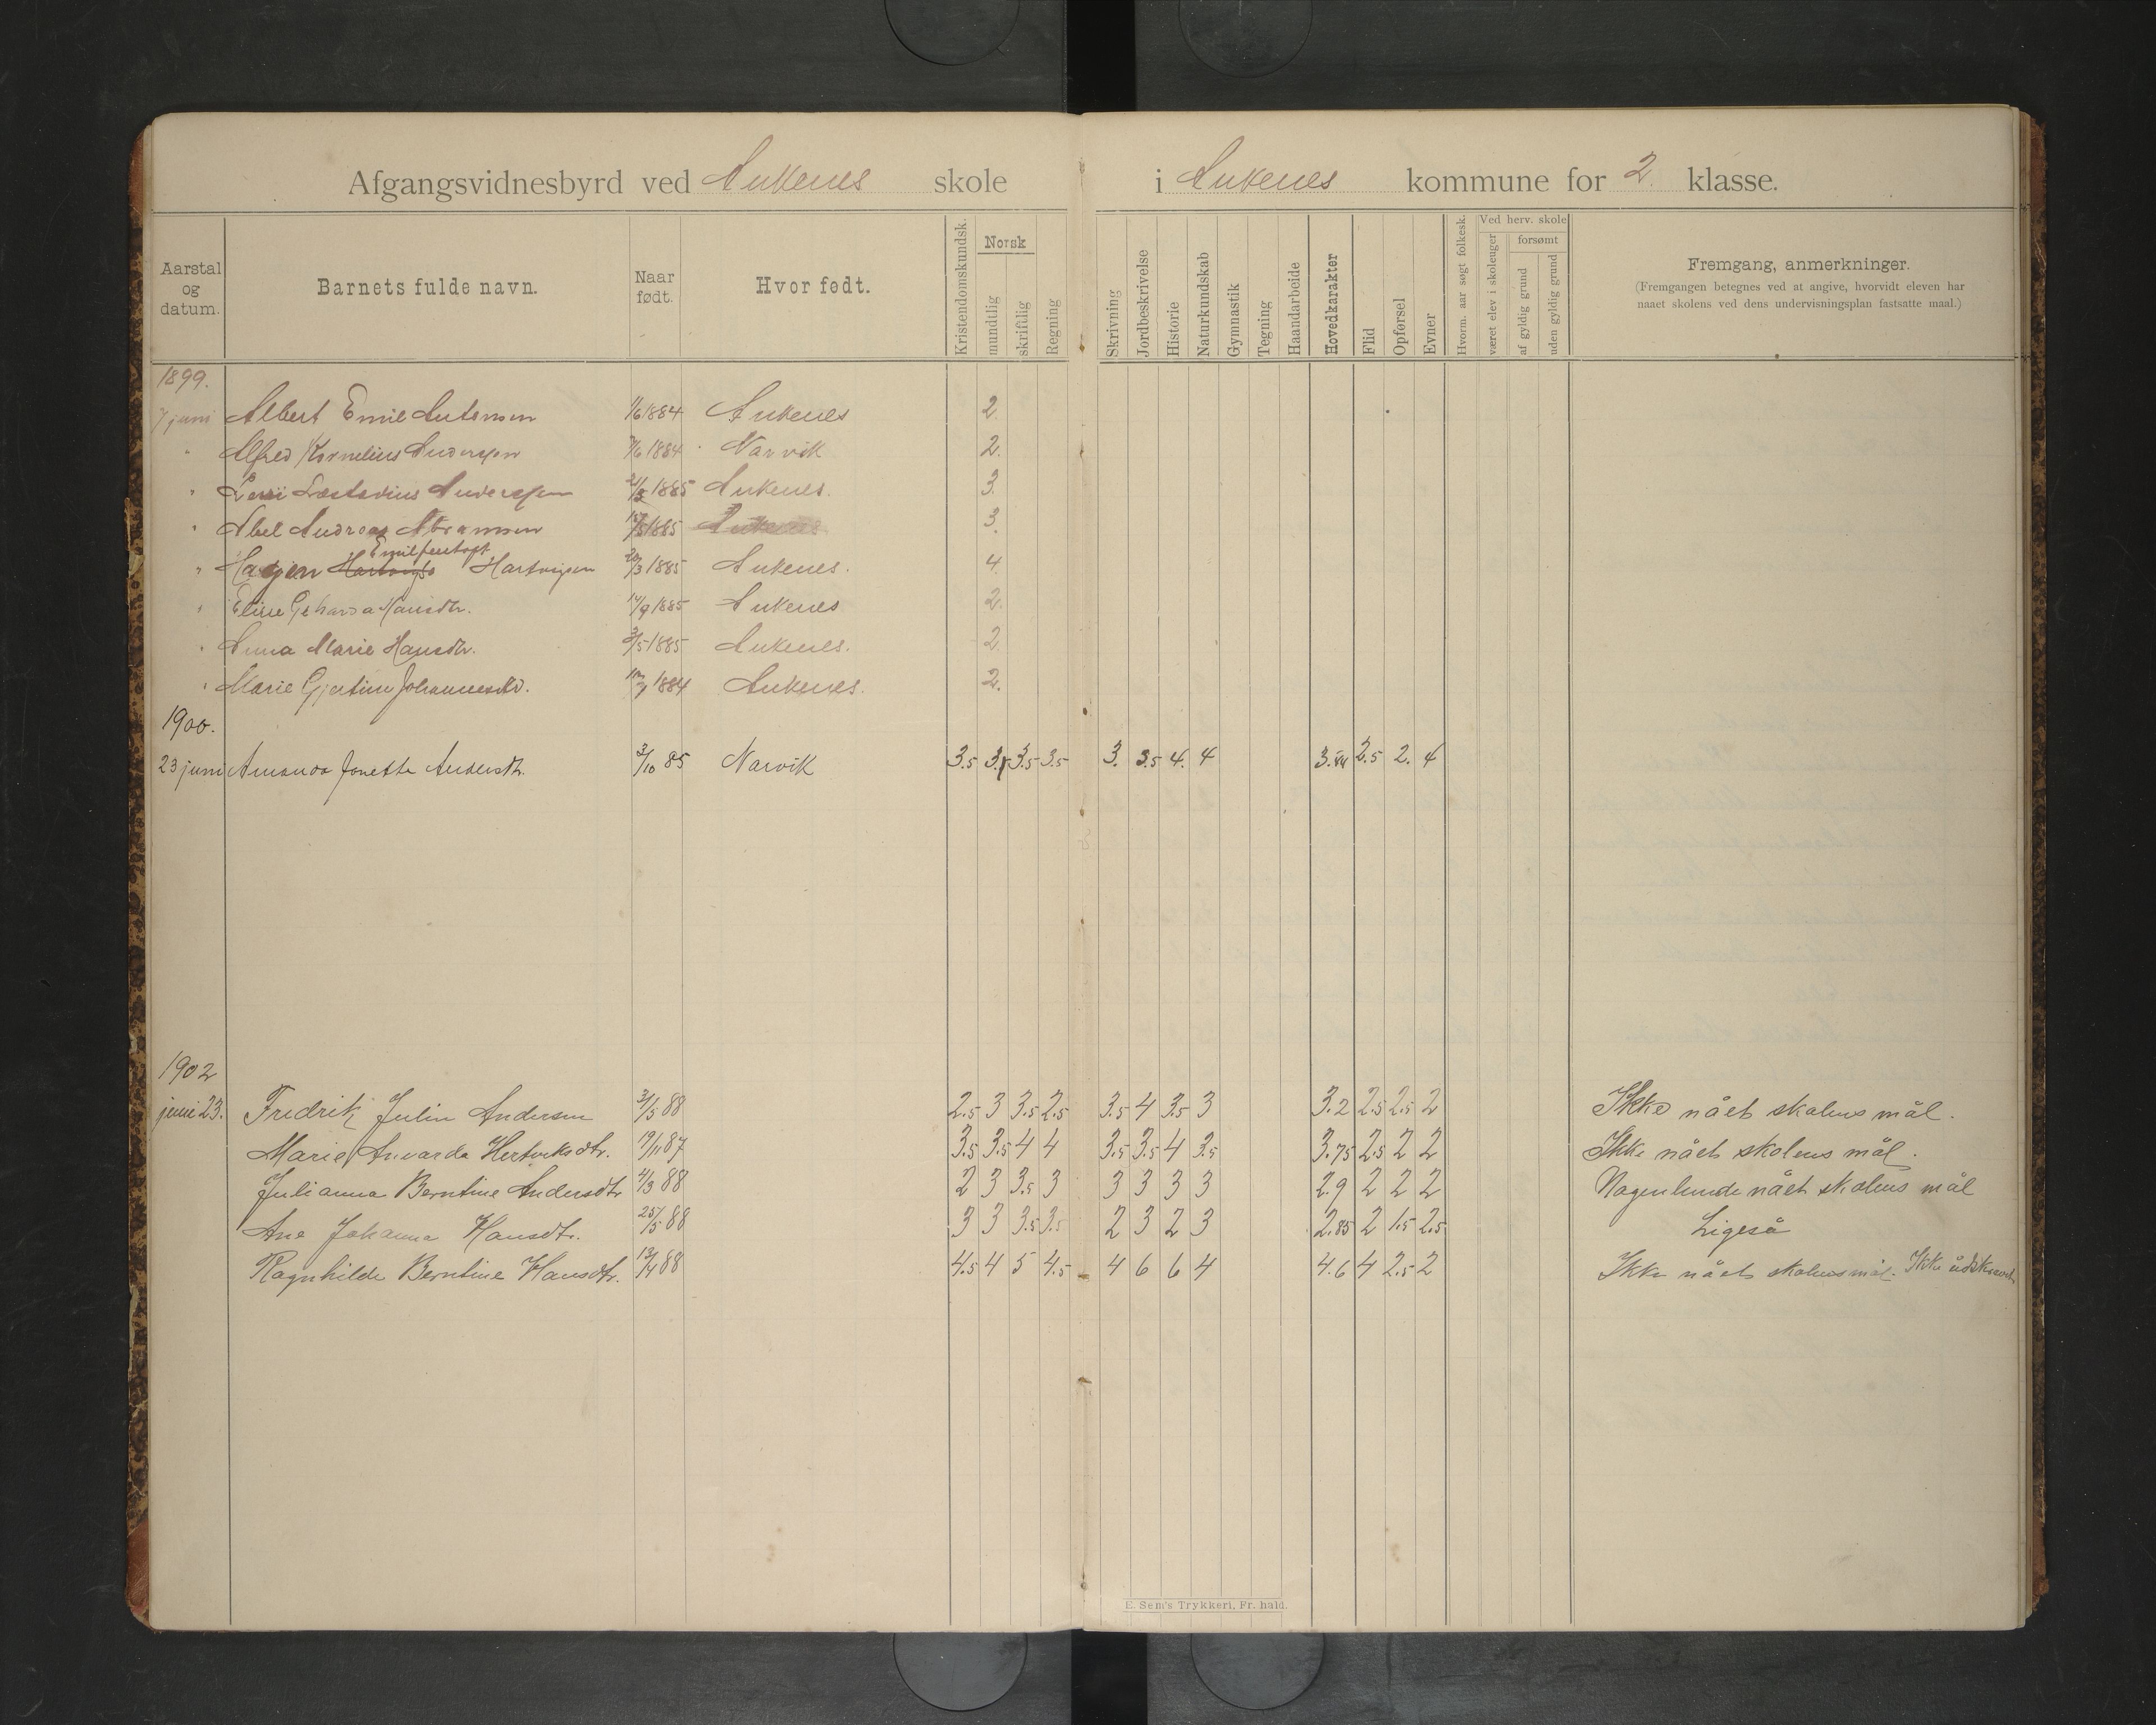 Afgangsvidnesbyrd ved Ankenes skole i Ankenes kommune for 2 klasse.
Aarstal og datum. Barnets fulde navn. Naar født. Hvor født. Kristendomskundsk. Norsk mundtlig skriftlig Regning Skrivning Jordbeskrivelse Historie Naturkundskab Gymnastik Tegning Haandarbeide Hovedkarakter Flid Opførsel Evner Hvorm. aar søgt folkesk. Ved herv. skole været elev i skoleuger forsømt af gyldig grund uden gyldig grund Fremgang, anmerkninger.
(Fremgangen betegnes ved at angive, hvorvidt eleven har
naaet skolens ved dens undervisningsplan fastsatte maal.)
1899.
7 juni Albert Emil Antonsen 1/6 1884 Ankenes 2
" Alfred Kornelius Anderssen /6 1884 Narvik 2.
" Læstadius Anderssen 1885 Ankenes. 3.
" Abel Andreas Abramsen 1885 Ankenes 3.
" Hagen Hartvigsen 20/3 1885 Ankenes. 4.
" Eline Hansdtr. 14/9 1885 Ankenes 2.
" Anna Marie Hansdtr. /5 1885 Ankenes. 2
" Marie Gjertine Johannesdtr. 1884 Ankenes. 2.
1900.
23 juni Amanda Jonette Andersdtr. 3/10 85 Narvik 3.5 3.5 3.5 3. 3.5 4. 4 2.5 2. 4
1902
juni 23. Fredrik Julin Andersen 3/5 88 2.5 3 3.5 2.5 3.5 4 3.5 3 3.2 2.5 2.5 2 Ikke nået skolens mål.
Marie Anvarda Hertviksdtr. 19/11 87 3.5 3.5 4 4 3.5 3.5 4 3.5 3.75 2.5 2 2 Ikke nået skolens mål.
Julianna Berntine Andersdtr 4/3 88 2 3 3.5 3 3 3 3 3 2.9 2 2 2 Nogenlunde nået skolens mål
Ane Johanna Hansdtr. 25/5 88 3 3 3.5 3.5 2 3 2 3 2.85 2 1.5 2.5 Ligeså
Ragnhilde Berntine Hansdtr. 13/4 88 4.5 4 5 4.5 4 6 6 4 4.6 4 2.5 2 Ikke nået skolens mål. Ikke udskrevet
E. Sem's Trykkeri, Fr.hald.